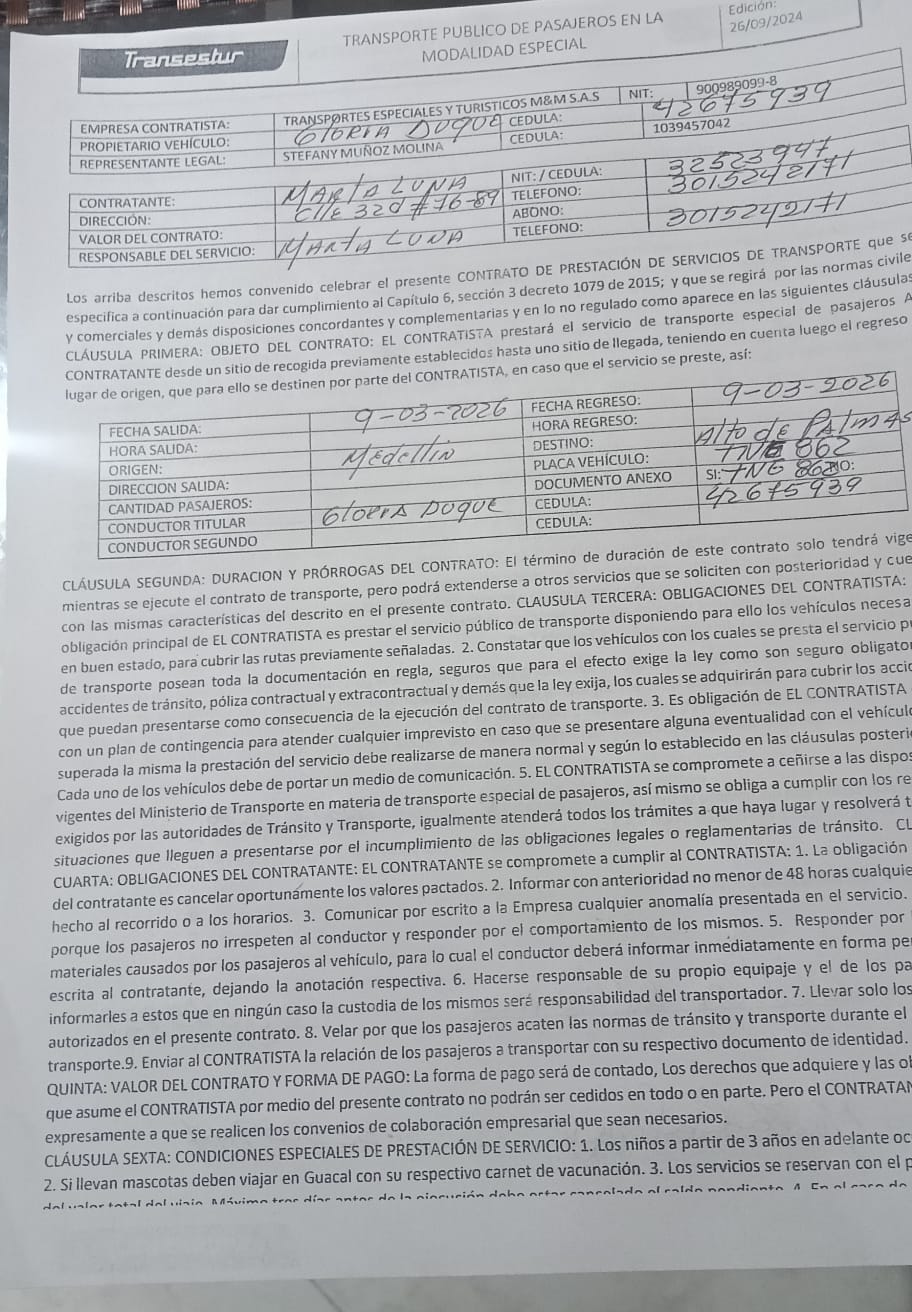 Transestur
TRANSPORTE PUBLICO DE PASAJEROS EN LA
MODALIDAD ESPECIAL
Edición:
26/09/2024
EMPRESA CONTRATISTA: TRANSPORTES ESPECIALES Y TURISTICOS M&M S.A.S NIT: 900989099-8
PROPIETARIO VEHÍCULO: GloRIA DUQUE CEDULA: 42675939
REPRESENTANTE LEGAL: STEFANY MUÑOZ MOLINA CEDULA: 1039457042
CONTRATANTE: MARTA LUNA NIT: / CEDULA: 32523947
DIRECCIÓN: Clle 32d #76-89 TELEFONO: 3015242171
VALOR DEL CONTRATO: ABONO:
RESPONSABLE DEL SERVICIO: MARTA LUNA TELEFONO: 3015242171
Los arriba descritos hemos convenido celebrar el presente CONTRATO DE PRESTACIÓN DE SERVICIOS DE TRANSPORTE que se
especifica a continuación para dar cumplimiento al Capítulo 6, sección 3 decreto 1079 de 2015; y que se regirá por las normas civile
y comerciales y demás disposiciones concordantes y complementarias y en lo no regulado como aparece en las siguientes cláusulas
CLÁUSULA PRIMERA: OBJETO DEL CONTRATO: EL CONTRATISTA prestará el servicio de transporte especial de pasajeros A
CONTRATANTE desde un sitio de recogida previamente establecidos hasta uno sitio de llegada, teniendo en cuenta luego el regreso
lugar de origen, que para ello se destinen por parte del CONTRATISTA, en caso que el servicio se preste, así:
FECHA SALIDA: 9-03-2026 FECHA REGRESO: 9-03-2026
HORA SALIDA: HORA REGRESO:
ORIGEN: Medellin DESTINO: Alto de PAlmas
DIRECCIÓN SALIDA: PLACA VEHÍCULO: TNG 862
CANTIDAD PASAJEROS: DOCUMENTO ANEXO SI: TNG 862 NO:
CONDUCTOR TITULAR GloeRA DUQUE CEDULA: 42675939
CONDUCTOR SEGUNDO CEDULA:
CLÁUSULA SEGUNDA: DURACION Y PRÓRROGAS DEL CONTRATO: El término de duración de este contrato solo tendrá vige
mientras se ejecute el contrato de transporte, pero podrá extenderse a otros servicios que se soliciten con posterioridad y cue
con las mismas características del descrito en el presente contrato. CLAUSULA TERCERA: OBLIGACIONES DEL CONTRATISTA:
obligación principal de EL CONTRATISTA es prestar el servicio público de transporte disponiendo para ello los vehículos necesa
en buen estado, para cubrir las rutas previamente señaladas. 2. Constatar que los vehículos con los cuales se presta el servicio p
de transporte posean toda la documentación en regla, seguros que para el efecto exige la ley como son seguro obligato
accidentes de tránsito, póliza contractual y extracontractual y demás que la ley exija, los cuales se adquirirán para cubrir los acci
que puedan presentarse como consecuencia de la ejecución del contrato de transporte. 3. Es obligación de EL CONTRATISTA
con un plan de contingencia para atender cualquier imprevisto en caso que se presentare alguna eventualidad con el vehícul
superada la misma la prestación del servicio debe realizarse de manera normal y según lo establecido en las cláusulas posteri
Cada uno de los vehículos debe de portar un medio de comunicación. 5. EL CONTRATISTA se compromete a ceñirse a las dispos
vigentes del Ministerio de Transporte en materia de transporte especial de pasajeros, así mismo se obliga a cumplir con los re
exigidos por las autoridades de Tránsito y Transporte, igualmente atenderá todos los trámites a que haya lugar y resolverá t
situaciones que lleguen a presentarse por el incumplimiento de las obligaciones legales o reglamentarias de tránsito. CL
CUARTA: OBLIGACIONES DEL CONTRATANTE: EL CONTRATANTE se compromete a cumplir al CONTRATISTA: 1. La obligación
del contratante es cancelar oportunamente los valores pactados. 2. Informar con anterioridad no menor de 48 horas cualquie
hecho al recorrido o a los horarios. 3. Comunicar por escrito a la Empresa cualquier anomalía presentada en el servicio.
porque los pasajeros no irrespeten al conductor y responder por el comportamiento de los mismos. 5. Responder por
materiales causados por los pasajeros al vehículo, para lo cual el conductor deberá informar inmediatamente en forma pe
escrita al contratante, dejando la anotación respectiva. 6. Hacerse responsable de su propio equipaje y el de los pa
informarles a estos que en ningún caso la custodia de los mismos será responsabilidad del transportador. 7. Llevar solo los
autorizados en el presente contrato. 8. Velar por que los pasajeros acaten las normas de tránsito y transporte durante el
transporte.9. Enviar al CONTRATISTA la relación de los pasajeros a transportar con su respectivo documento de identidad.
QUINTA: VALOR DEL CONTRATO Y FORMA DE PAGO: La forma de pago será de contado, Los derechos que adquiere y las ob
que asume el CONTRATISTA por medio del presente contrato no podrán ser cedidos en todo o en parte. Pero el CONTRATAN
expresamente a que se realicen los convenios de colaboración empresarial que sean necesarios.
CLÁUSULA SEXTA: CONDICIONES ESPECIALES DE PRESTACIÓN DE SERVICIO: 1. Los niños a partir de 3 años en adelante oc
2. Si llevan mascotas deben viajar en Guacal con su respectivo carnet de vacunación. 3. Los servicios se reservan con el p
del valor total del viaje. Máximo tres días antes de la ejecución debe estar cancelado el saldo pendiente. 4. En el caso de